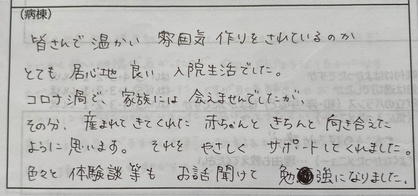 (病棟)
皆さんで温かい 雰囲気 作りをされているのか
とても 居心地 良い 入院生活でした。
コロナ渦で、家族には 会えませんでしたが、
その分、産まれてきてくれた 赤ちゃんと きちんと 向き合えた
ように 思います。 それを やさしく サポートしてくれました。
色々と 体験談等も お話聞けて 勉強になりました。